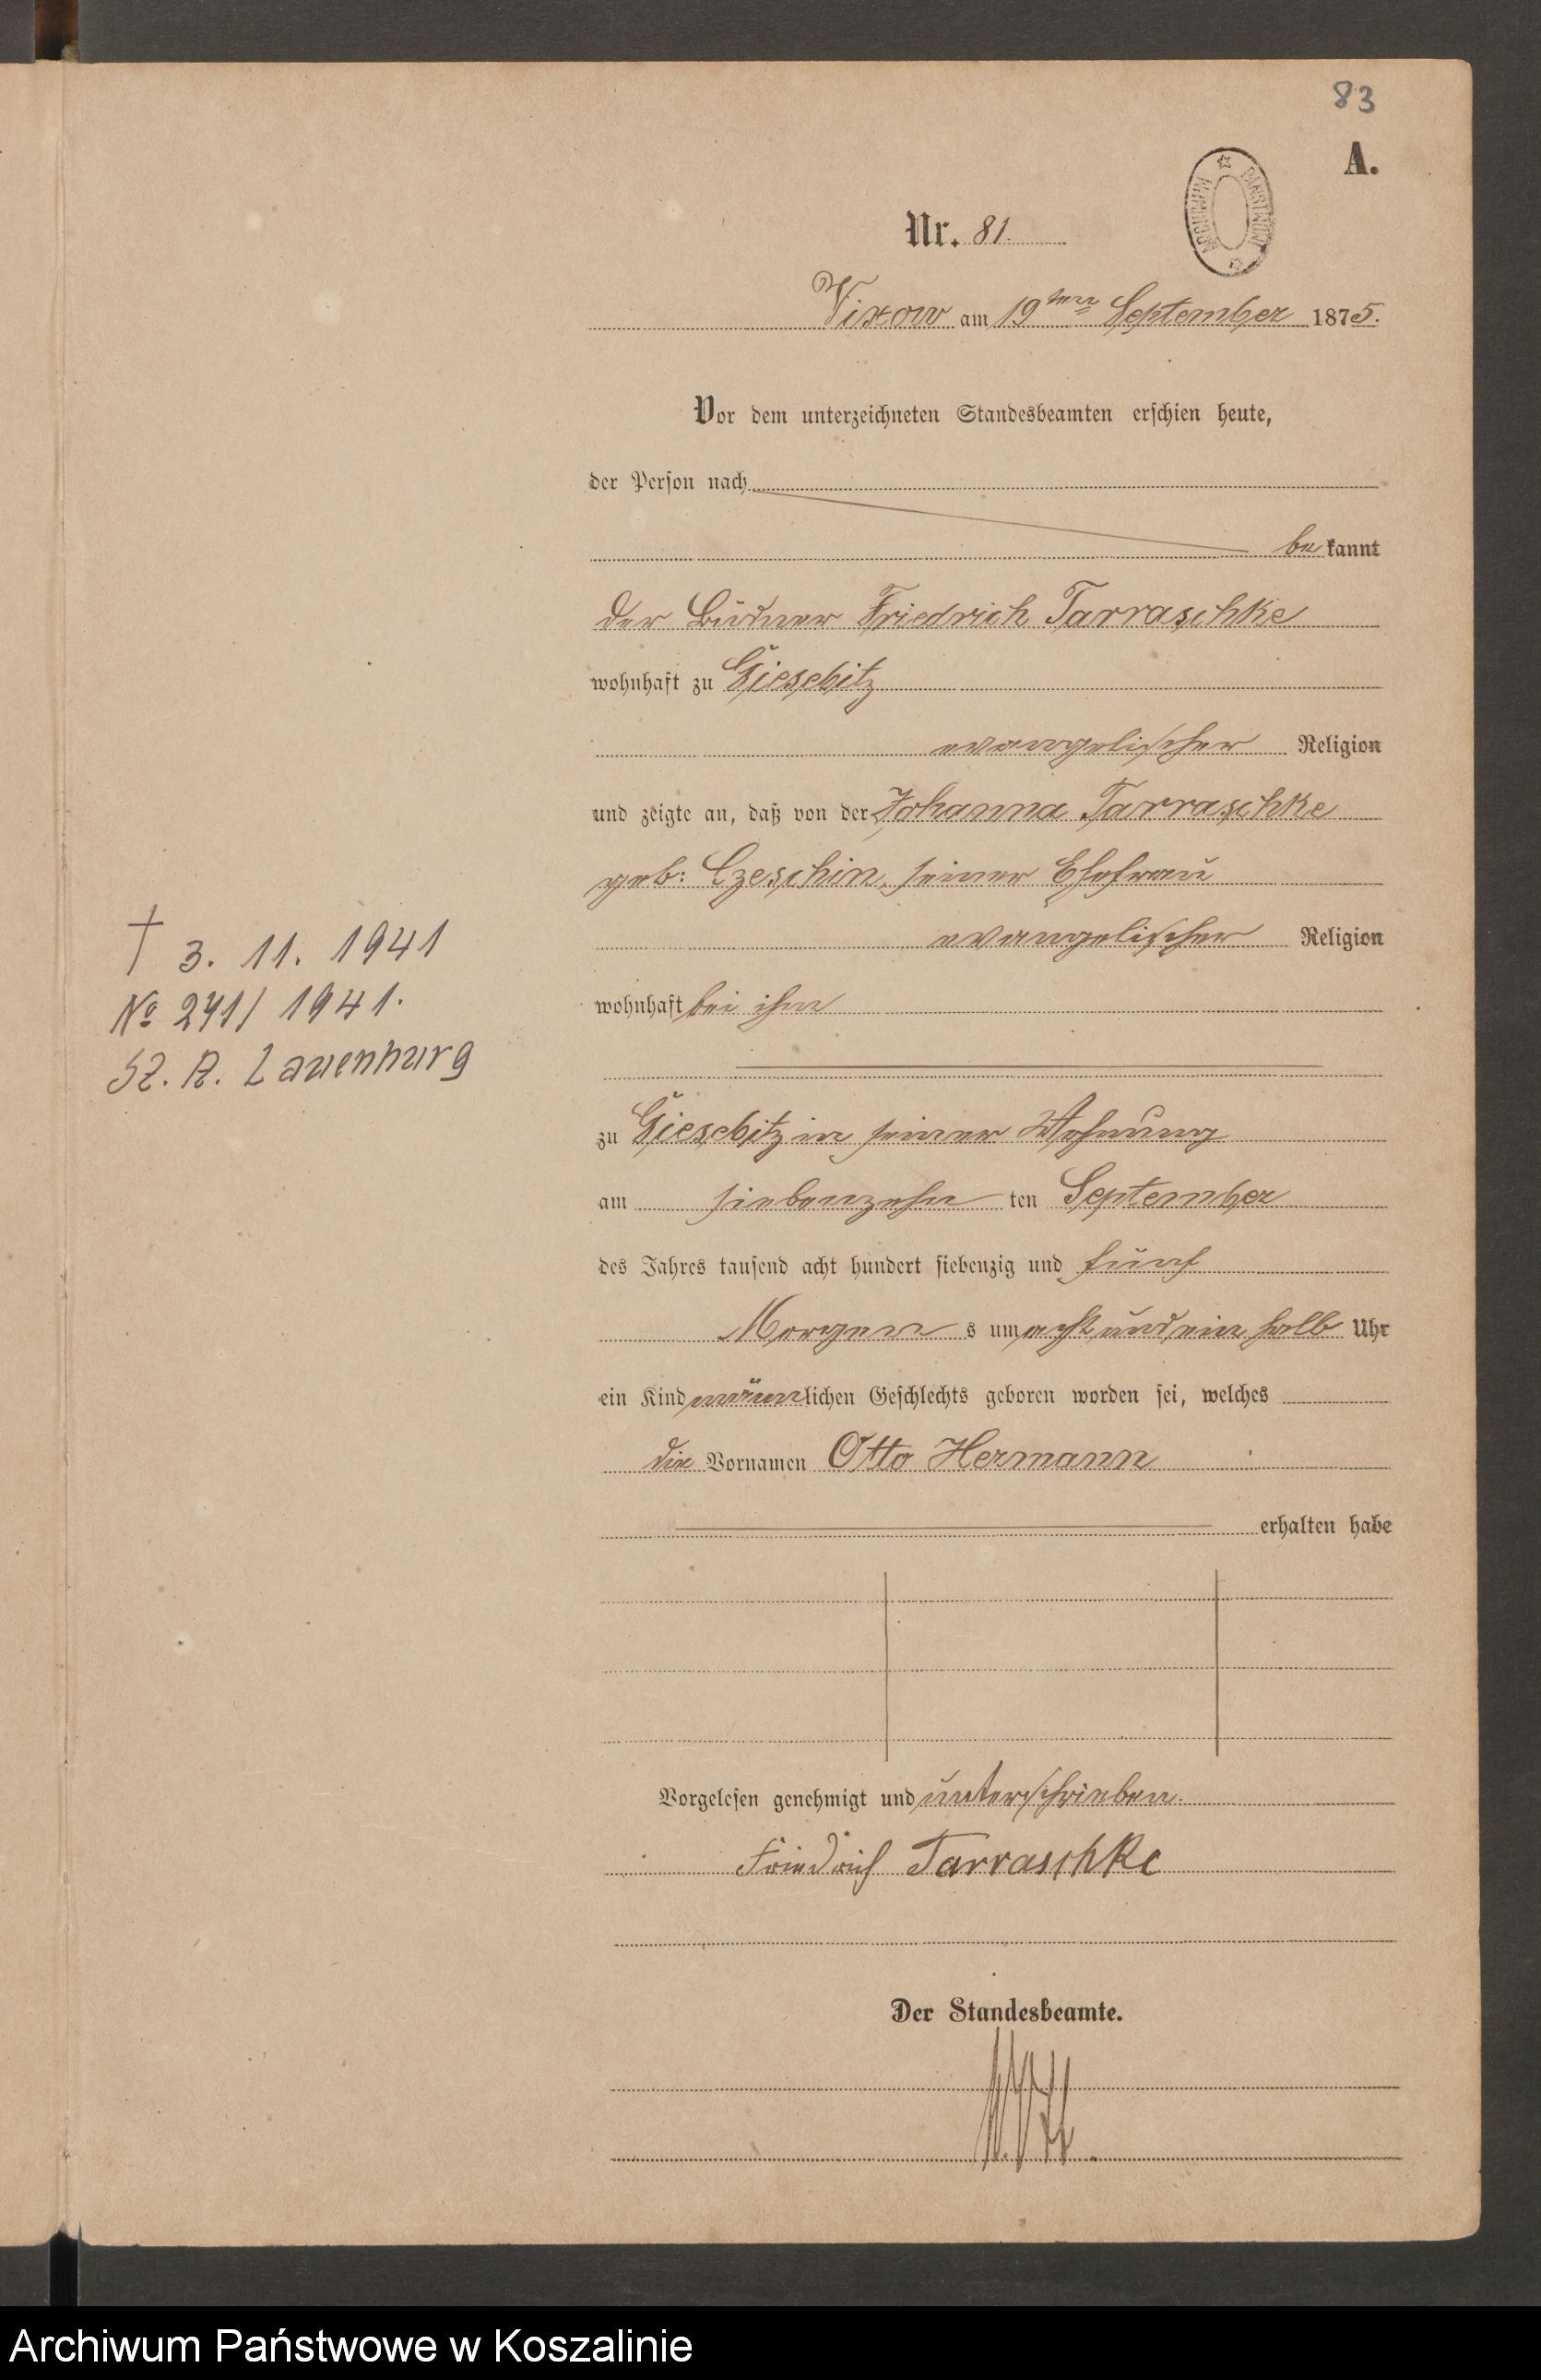 83
A.
Nr. 81.
ARCHIWUM PAŃSTWOWE
Vixow am 19ten September 1875.
Vor dem unterzeichneten Standesbeamten erschien heute,
der Person nach
bekannt
der Büdner Friedrich Tarraschke
wohnhaft zu Giesebitz
evangelischer Religion
und zeigte an, daß von der Johanna Tarraschke
geb: Czeschin, seiner Ehefrau
evangelischer Religion
† 3. 11. 1941
No 241/1941.
St. A. Lauenburg
wohnhaft bei ihm
zu Giesebitz in seiner Wohnung
am siebenzehn ten September
des Jahres tausend acht hundert siebenzig und fünf
Morgens um acht und ein halb Uhr
ein Kind männlichen Geschlechts geboren worden sei, welches
die Vornamen Otto Hermann
erhalten habe
Vorgelesen genehmigt und unterschrieben.
Friedrich Tarraschke
Der Standesbeamte.
Archiwum Państwowe w Koszalinie